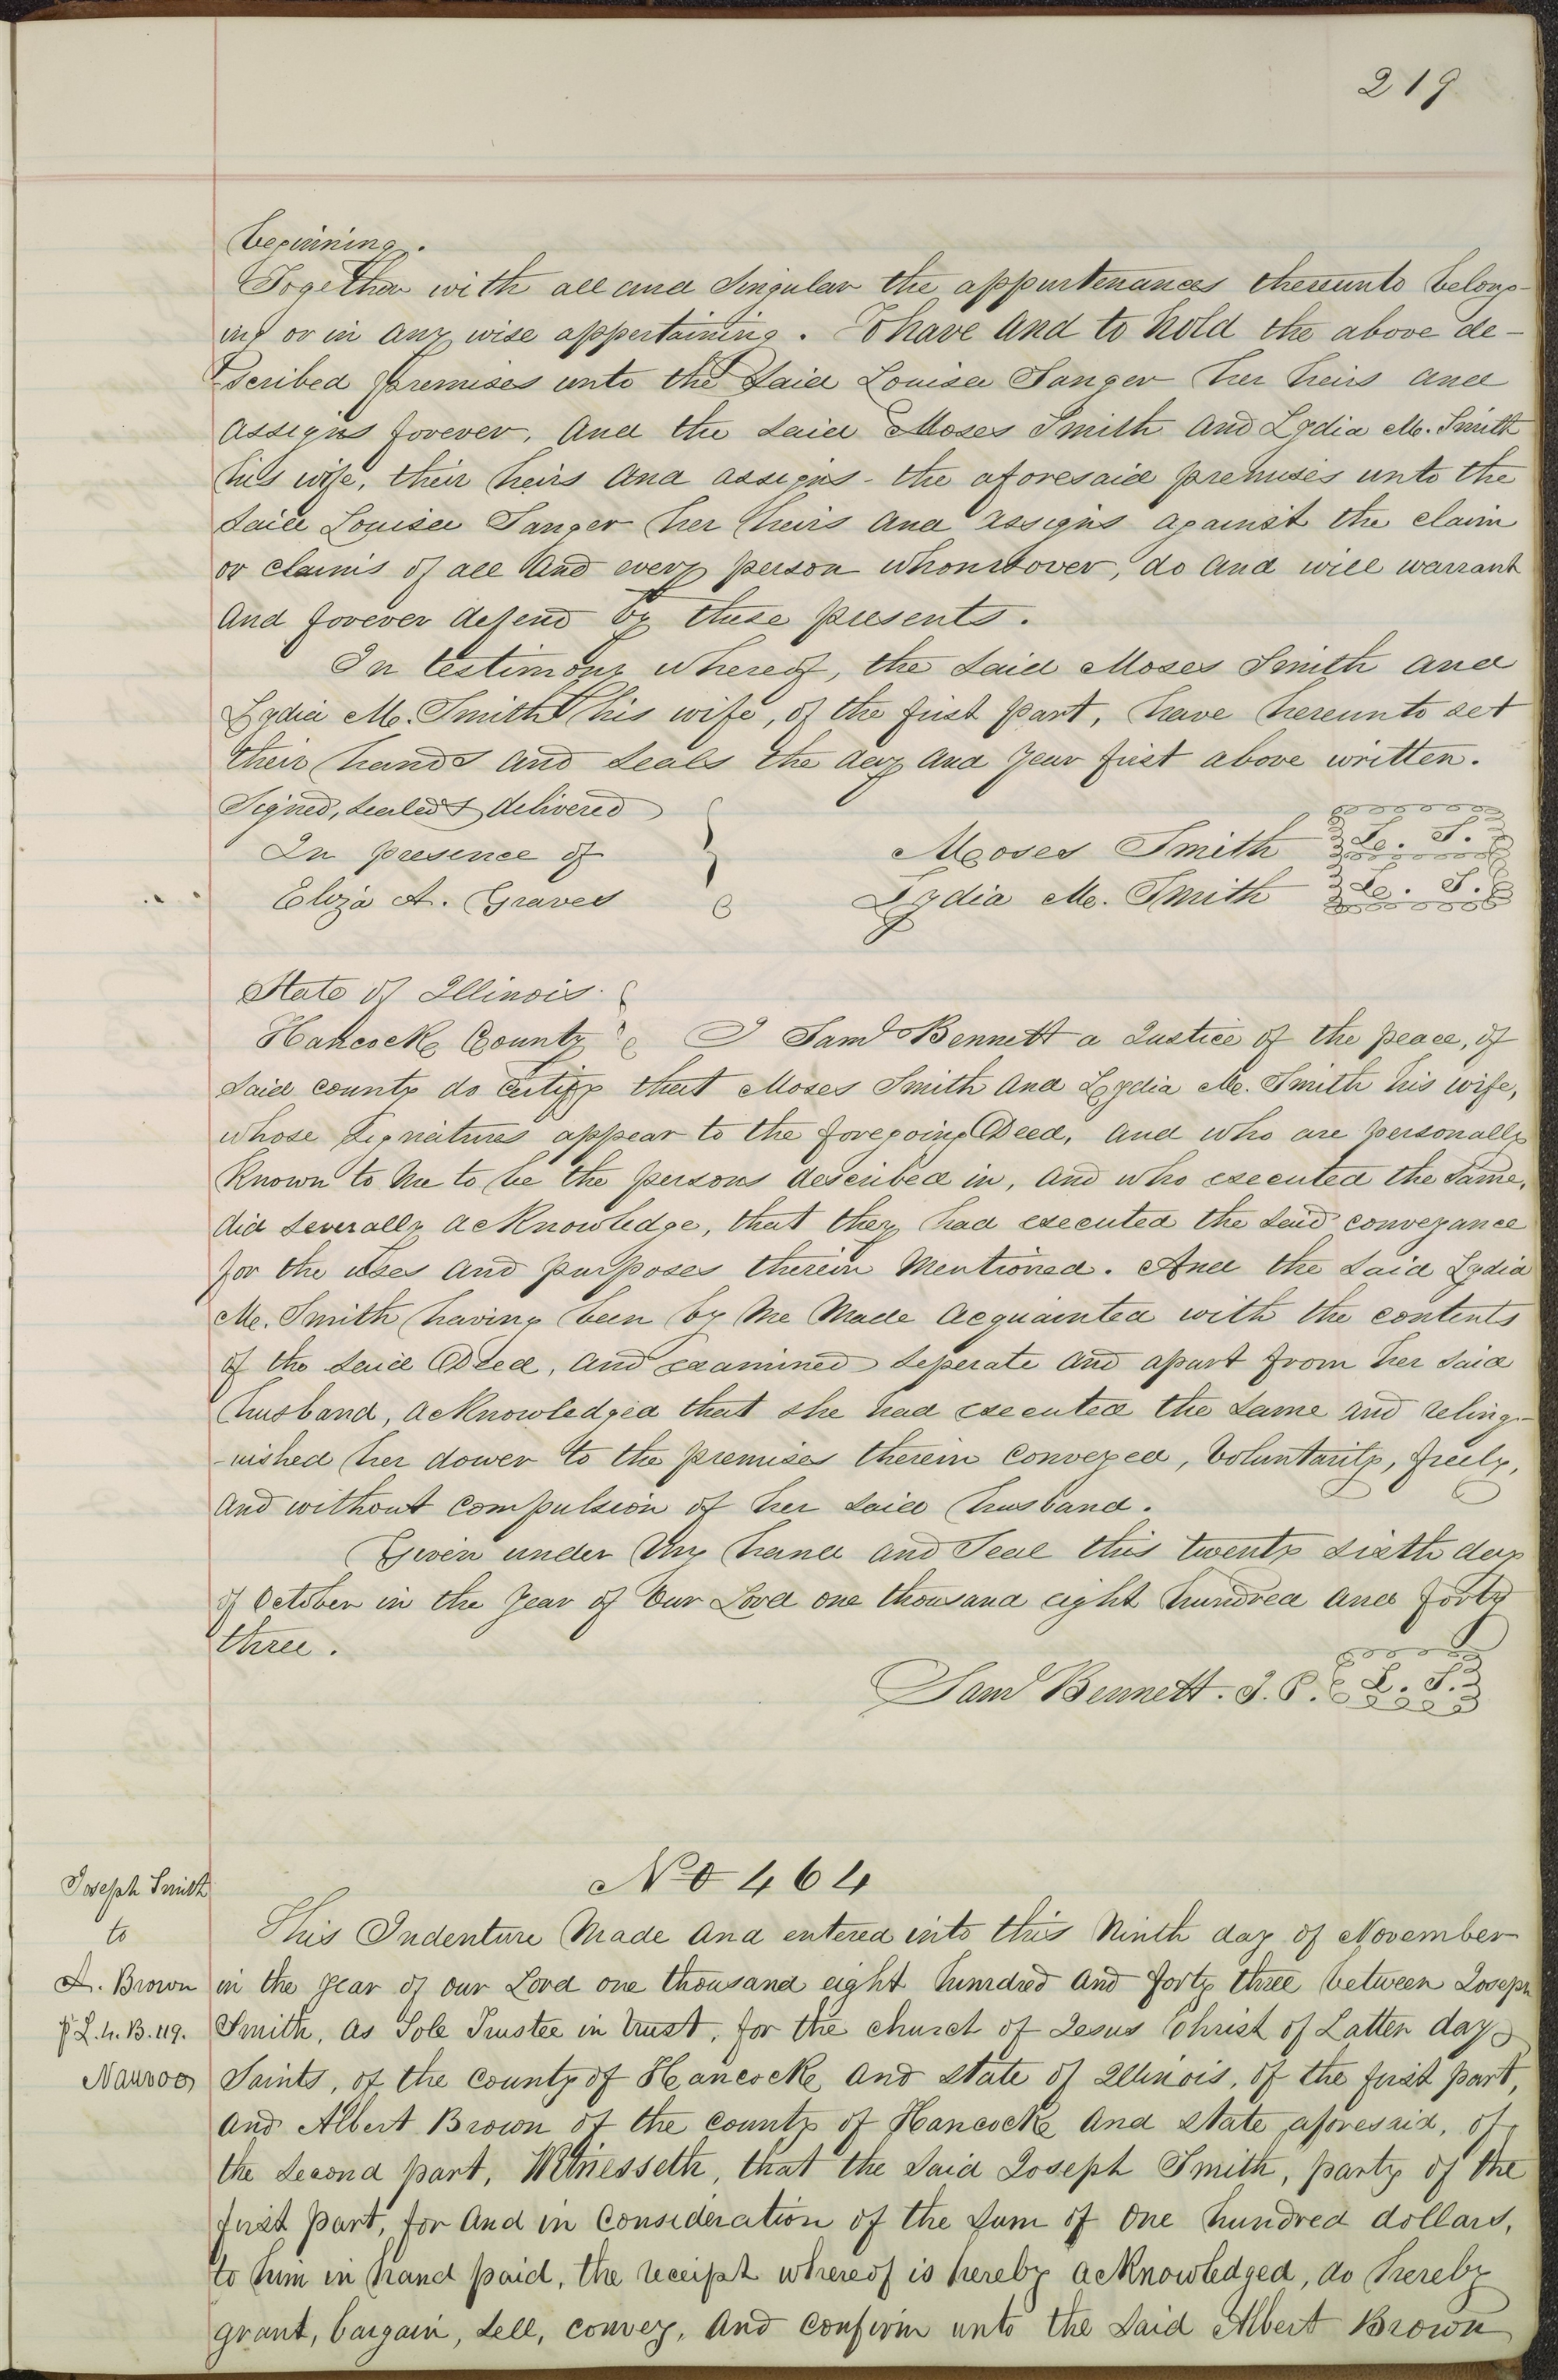 219
beginning.
Together with all and Singular the appurtenances thereunto belong-
ing or in any wise appertaining. To have and to hold the above de-
scribed premises unto the Said Louisa Sanger her heirs and
assigns forever, And the said Moses Smith and Lydia M. Smith
his wife, their heirs and assigns - the aforesaid premises unto the
said Louisa Sanger her heirs and assigns against the claim
or claims of all and every person whomsoever, do and will warrant
and forever defend by these presents.
In testimony whereof, the said Moses Smith and
Lydia M. Smith his wife, of the first part, have hereunto set
their hands and seals the day and year first above written.
Signed, sealed & delivered
In presence of
Moses Smith L. S.
Eliza A. Graves
Lydia M. Smith L. S.
State of Illinois
Hancock County I Saml Bennett a Justice of the peace, of
said county do certify that Moses Smith and Lydia M. Smith his wife,
whose signatures appear to the foregoing Deed, and who are personally
known to me to be the persons described in, and who executed the same,
did severally acknowledge, that they had executed the said conveyance
for the uses and purposes therein mentioned. And the said Lydia
M. Smith having been by me made acquainted with the contents
of the said Deed, and examined seperate and apart from her said
husband, acknowledged that she had executed the same and relinq-
-uished her dower to the premises therein conveyed, voluntarily, freely,
and without compulsion of her said husband.
Given under my hand and Seal this twenty sixth day
of October in the year of our Lord one thousand eight hundred and forty
three.
Saml Bennett. J. P. L. S.
No 464
Joseph Smith
to
A. Brown
P L. 4. B. 119.
Nauvoo
This Indenture made and entered into this Ninth day of November
in the year of our Lord one thousand eight hundred and forty three between Joseph
Smith, as Sole Trustee in trust, for the church of Jesus Christ of Latter day
Saints, of the county of Hancock and state of Illinois, of the first part,
and Albert Brown of the county of Hancock and state aforesaid, of
the second part, Witnesseth, that the said Joseph Smith, party of the
first part, for and in consideration of the sum of one hundred dollars,
to him in hand paid, the receipt whereof is hereby acknowledged, do hereby
grant, bargain, sell, convey, and confirm unto the said Albert Brown